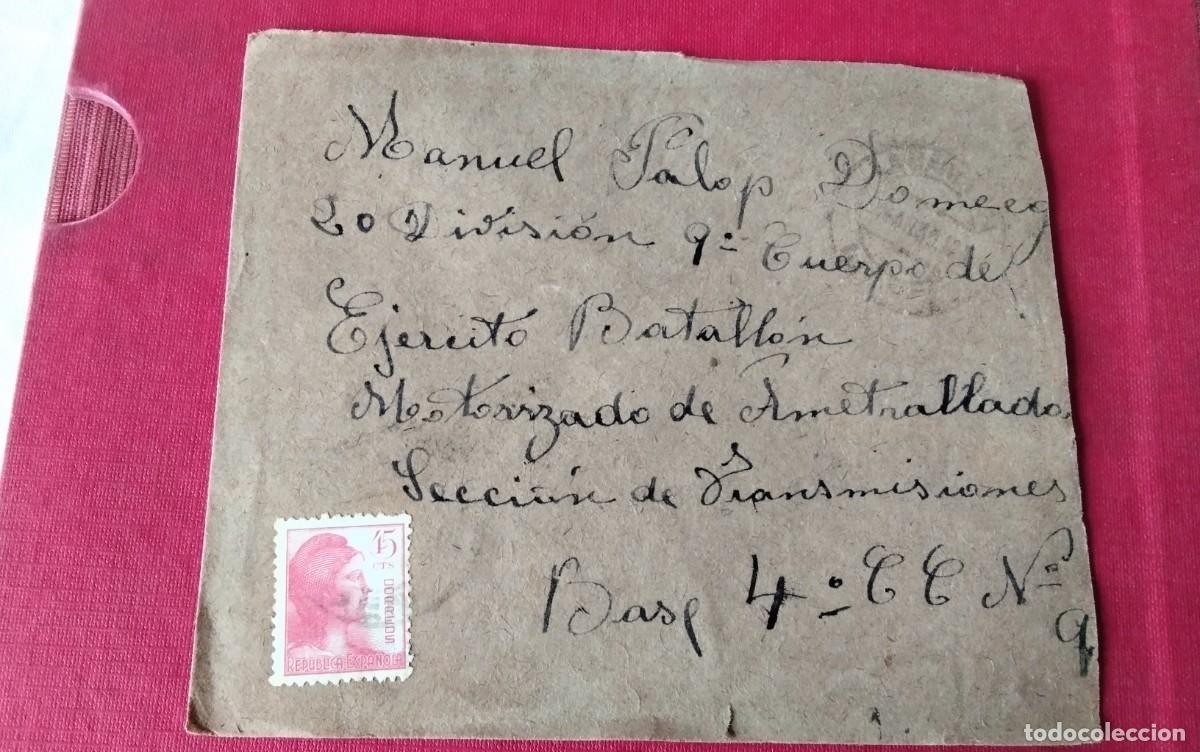 Manuel Palop Domeeg
20 División 9º Cuerpo de
Ejercito Batallón
Motorizado de Ametrallado
Sección de Transmisiones
Base 4º CC Nº
9
45
CTS
CORREOS
REPUBLICA ESPAÑOLA
todocoleccion